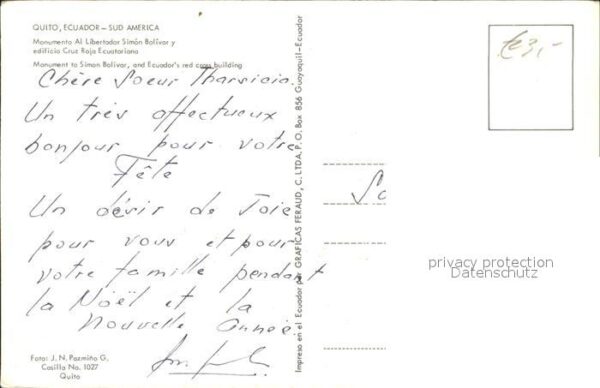 QUITO, ECUADOR — SUD AMERICA
Monumento Al Libertador Simón Bolívar y
edificio Cruz Roja Ecuatoriana
Monument to Simon Bolivar, and Ecuador's red cross building
Chère Soeur Tharsicia.
Un très affectueux
bonjour pour votre
Fête
Un désir de Joie
pour vous et pour
votre famille pendant
la Nöel et la
Nouvelle année
Foto: J. N. Pazmiño G.
Casilla No. 1027
Quito
Impreso en el Ecuador por GRAFICAS FERAUD, C. LTDA, P. O. Box 856 Guayaquil-Ecuador
€3,-
So
privacy protection
Datenschutz